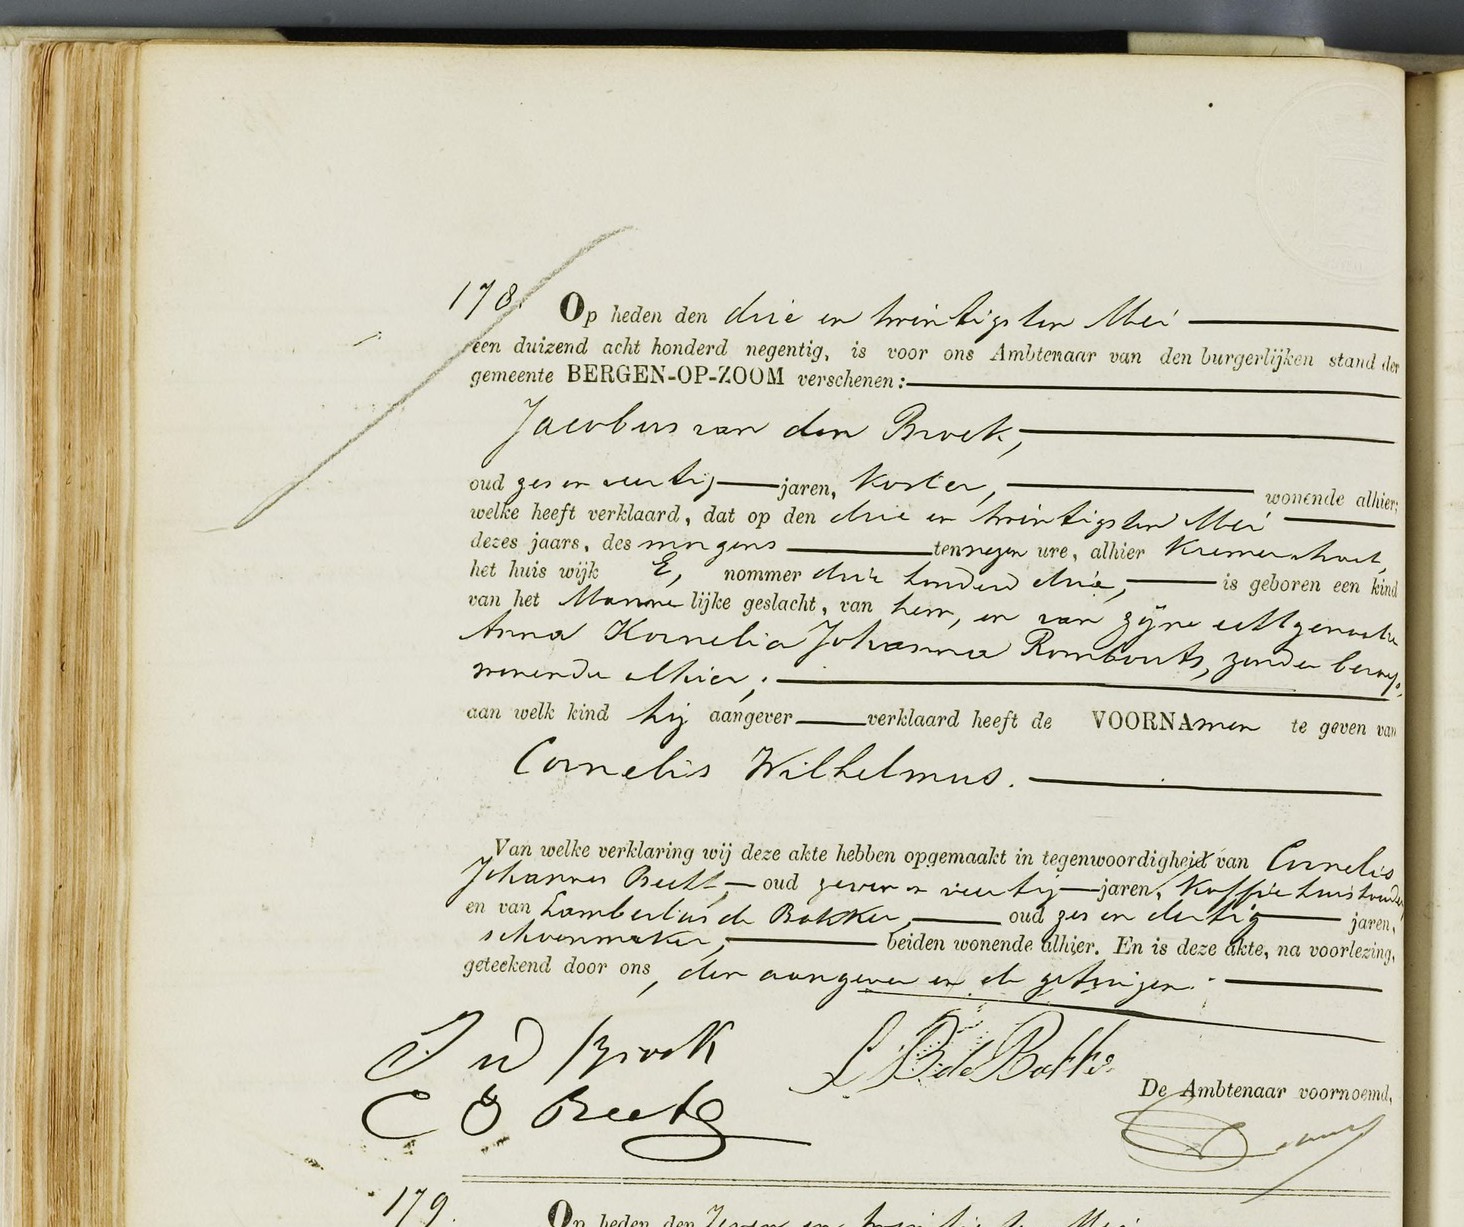 178.
Op heden den drie en twintigsten Mei
een duizend acht honderd negentig, is voor ons Ambtenaar van den burgerlijken stand der
gemeente BERGEN-OP-ZOOM verschenen:
Jacobus van den Broek,
oud zes en veertig jaren, Koster, wonende alhier;
welke heeft verklaard, dat op den drie en twintigsten Mei
dezes jaars, des morgens ten negen ure, alhier
het huis wijk E, nommer drie honderd drie, is geboren een kind
van het Mannelijke geslacht, van hem, en van zijne echtgenoote
Anna Kornelia Johanna Rombouts, zonder beroep,
wonende alhier;
aan welk kind hij aangever verklaard heeft de VOORNAmen te geven van
Cornelis Wilhelmus.
Van welke verklaring wij deze akte hebben opgemaakt in tegenwoordigheid van Cornelis
Johannes oud zeven en veertig jaren, Koffiehuishouder
en van Lambertus de Bakker, oud zes en dertig jaren,
schoenmaker, beiden wonende alhier. En is deze akte, na voorlezing,
geteekend door ons, den aangever en de getuigen.
J vd Broek
L B de Bakker
C J
De Ambtenaar voornoemd,
179.
Op heden den Zeven en twintigsten Mei